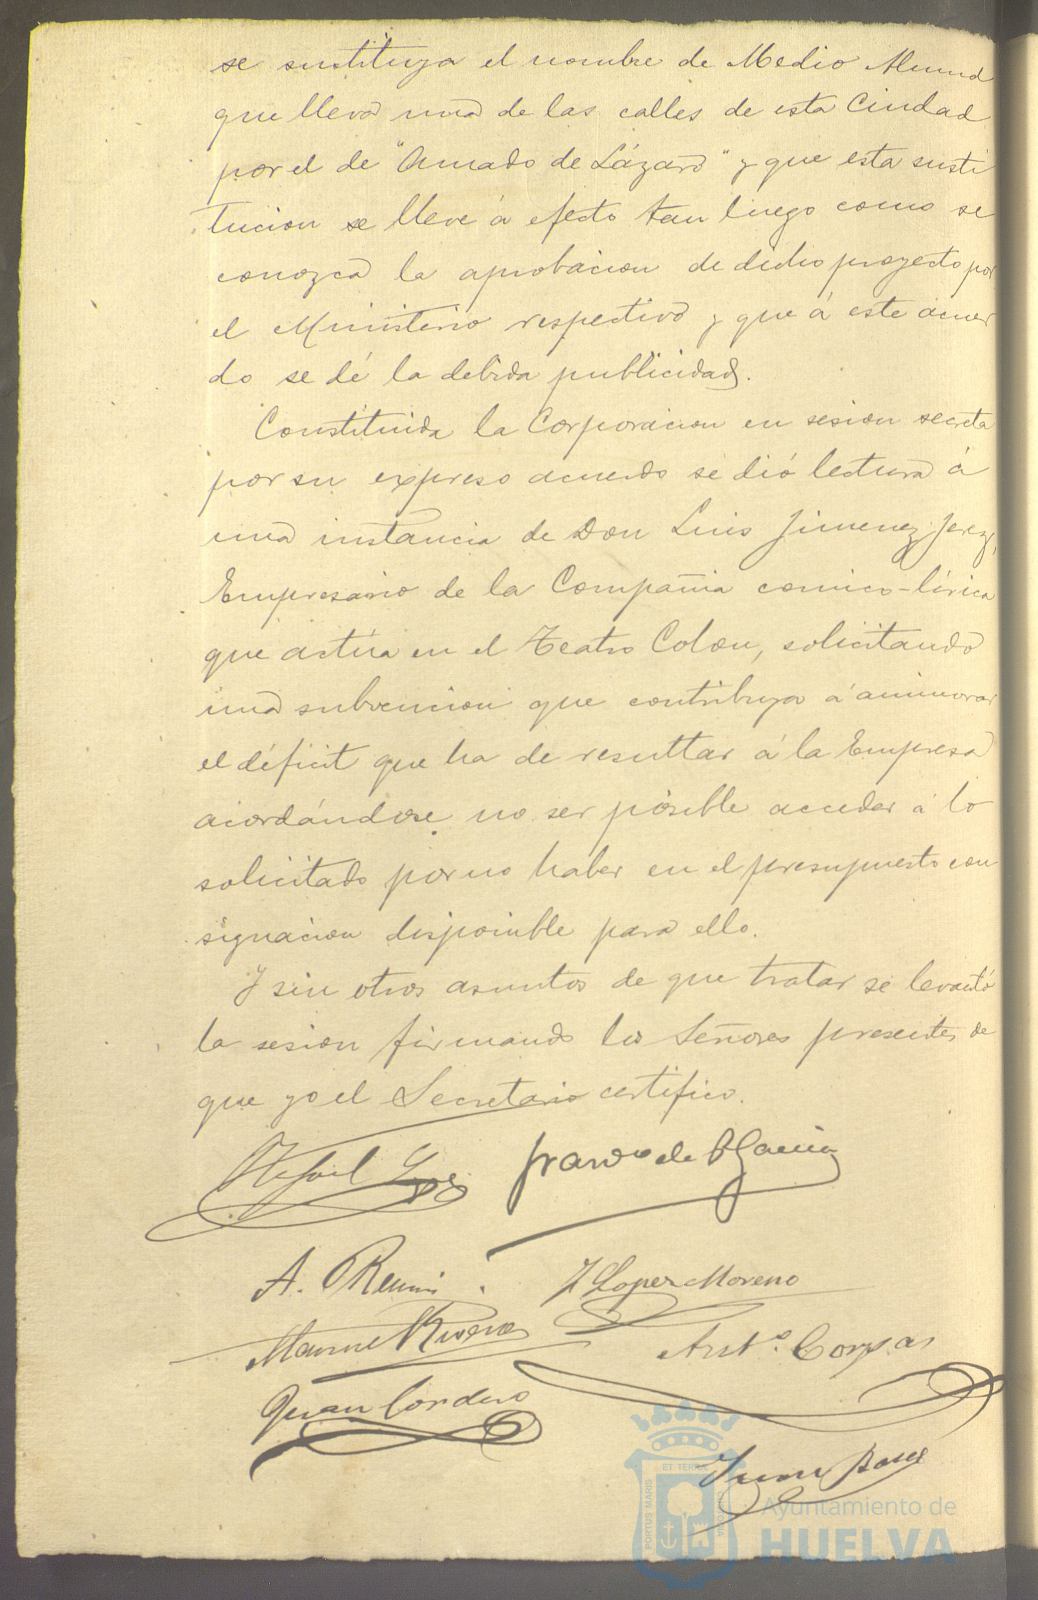 se sustituya el nombre de Medio Almud
que lleva una de las calles de esta Ciudad
por el de "Amado de Lázaro" y que esta susti
tucion se lleve á efecto tan luego como se
conozca la aprobacion de dicho proyecto por
el Ministerio respectivo y que á este acuer
do se dé la debida publicidad.
Constituida la Corporacion en sesion secreta
por su expreso acuerdo se dió lectura á
una instancia de Don Luis Jimenez Jerez,
Empresario de la Compañia comico-lírica
que actúa en el Teatro Colon, solicitando
una subvencion que contribuya á aminorar
el déficit que ha de resultar á la Empresa
acordándose no ser posible acceder á lo
solicitado por no haber en el presupuesto con
signacion disponible para ello.
Y sin otros asuntos de que tratar se levantó
la sesion firmando los Señores presentes de
que yo el Secretario certifico.
de P Garcia
A.
Lopez Moreno
Manuel Rivera
Antº. Corpas
Juan Cordero
Juan
PORTUS MARIS ET TERRÆ CUSTODIA
Ayuntamiento de
HUELVA